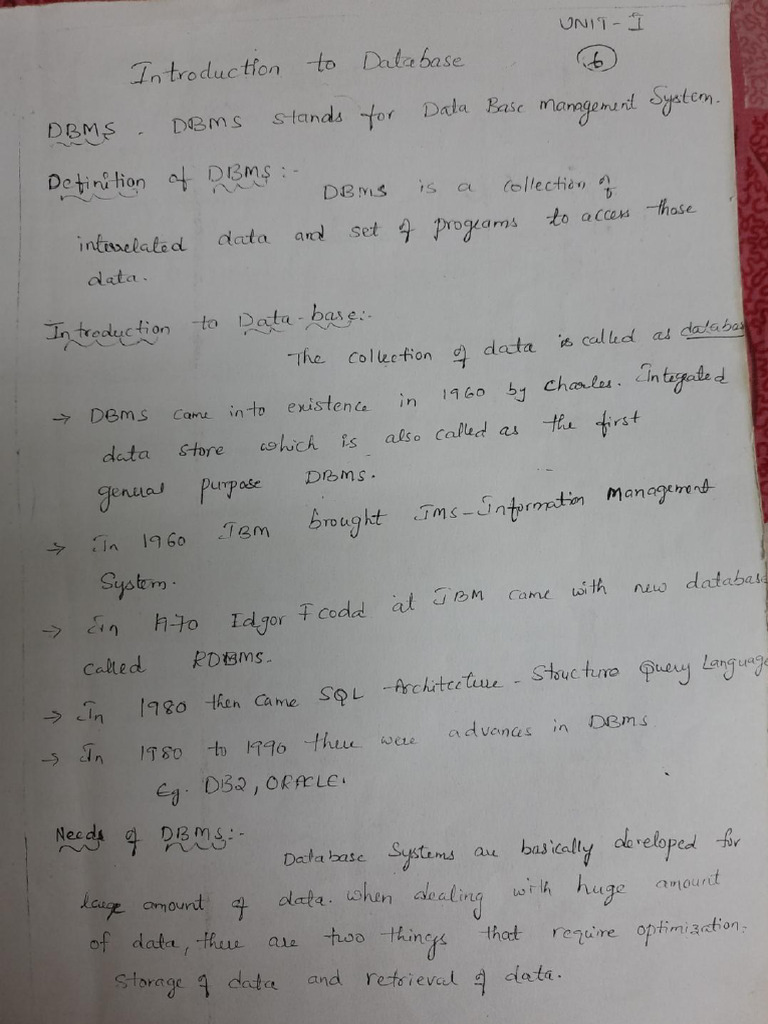 UNIT - I
6
Introduction to Database
DBMS - DBMS stands for Data Base Management System.
Definition of DBMS :-
DBMS is a collection of
interrelated data and set of programs to access those
data.
Introduction to Data-base:-
The collection of data is called as databas
→ DBMS came into existence in 1960 by Charles. Integrated
data store which is also called as the first
general purpose DBMS.
→ In 1960 IBM brought IMS-Information Management
System.
→ In 1970 Edgor F codd at IBM came with new database
called RDBMS.
→ In 1980 then came SQL -Architecture - Structure Query Language
→ In 1980 to 1990 there were advances in DBMS
Eg. DB2, ORACLE.
Needs of DBMS:-
Database Systems are basically developed for
large amount of data. when dealing with huge amount
of data, there are two things that require optimization.
Storage of data and retrieval of data.